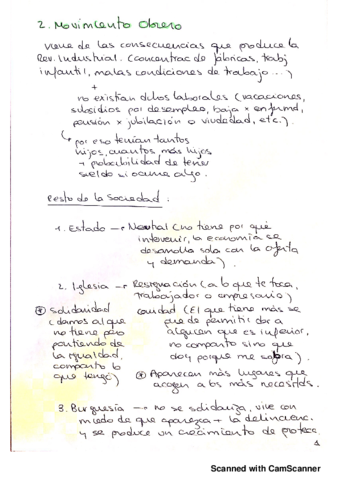 2. Movimiento Obrero
viene de las consecuencias que produce la
Rev. Industrial. (concentrac de fábricas, trabj
infantil, malas condiciones de trabajo...)
+
no existían dchos laborales (vacaciones,
subsidios por desempleo, baja x enfermd,
pensión x jubilación o viudedad, etc.)
↳ por eso tenían tantos
hijos, cuantos más hijos
→ probabilidad de tener
sueldo si ocurre algo.
Resto de la Sociedad:
1. Estado → Neutral (no tiene por qué
intervenir, la economía se
desarrolla sola con la oferta
y demanda).
2. Iglesia → Resignación (a lo que te toca,
trabajador o empresario)
caridad (El que tiene más se
puede permitir dar a
alguien que es inferior,
no comparto sino que
doy porque me sobra).
* Solidaridad
(damos al que
no tiene pero
partiendo de
la igualdad,
comparto lo
que tengo)
* Aparecen más lugares que
acogen a los más necesitds.
3. Burguesía → no se solidariza, vive con
miedo de que aparezca + la delincuenc.
y se produce un crecimiento de protec.
1
Scanned with CamScanner